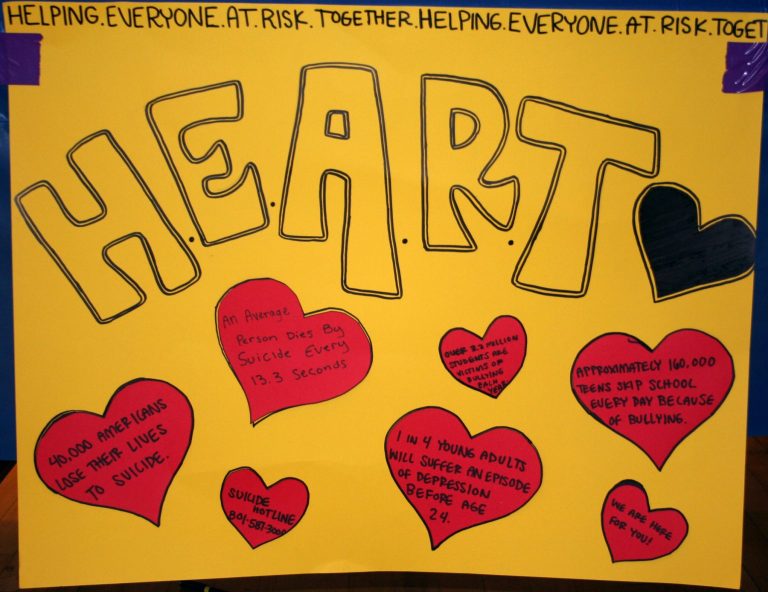 HELPING.EVERYONE.AT.RISK.TOGETHER.HELPING.EVERYONE.AT.RISK.TOGET
H.E.A.R.T
An Average
Person Dies By
Suicide Every
13.3 Seconds
OVER 3.2 MILLION
STUDENTS ARE
VICTIMS OF
BULLYING
EACH
YEAR.
APPROXIMATELY 160,000
TEENS SKIP SCHOOL
EVERY DAY BECAUSE
OF BULLYING.
40,000 AMERICANS
LOSE THEIR LIVES
TO SUICIDE.
1 IN 4 YOUNG ADULTS
WILL SUFFER AN EPISODE
OF DEPRESSION
BEFORE AGE
24.
SUICIDE
HOTLINE
801-587-3000
WE ARE HERE
FOR YOU!